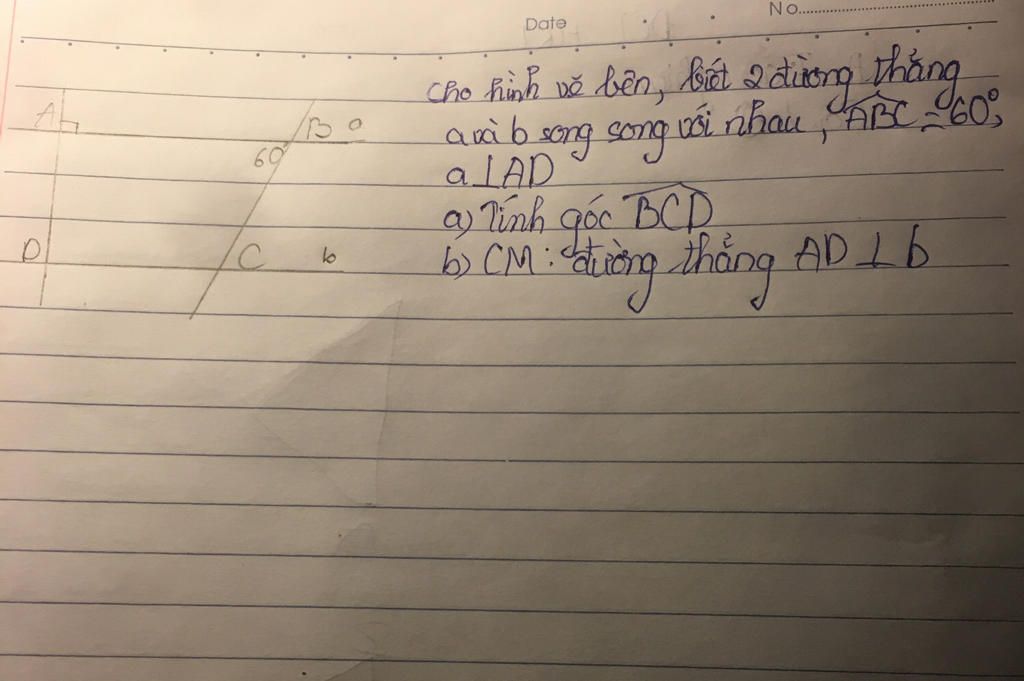 Date
No
Cho hình vẽ bên, biết 2 đường thẳng
a và b song song với nhau, ABC = 60°,
a ⊥ AD
a) Tính góc BCD
b) CM: đường thẳng AD ⊥ b
A
B a
60°
D
C
b